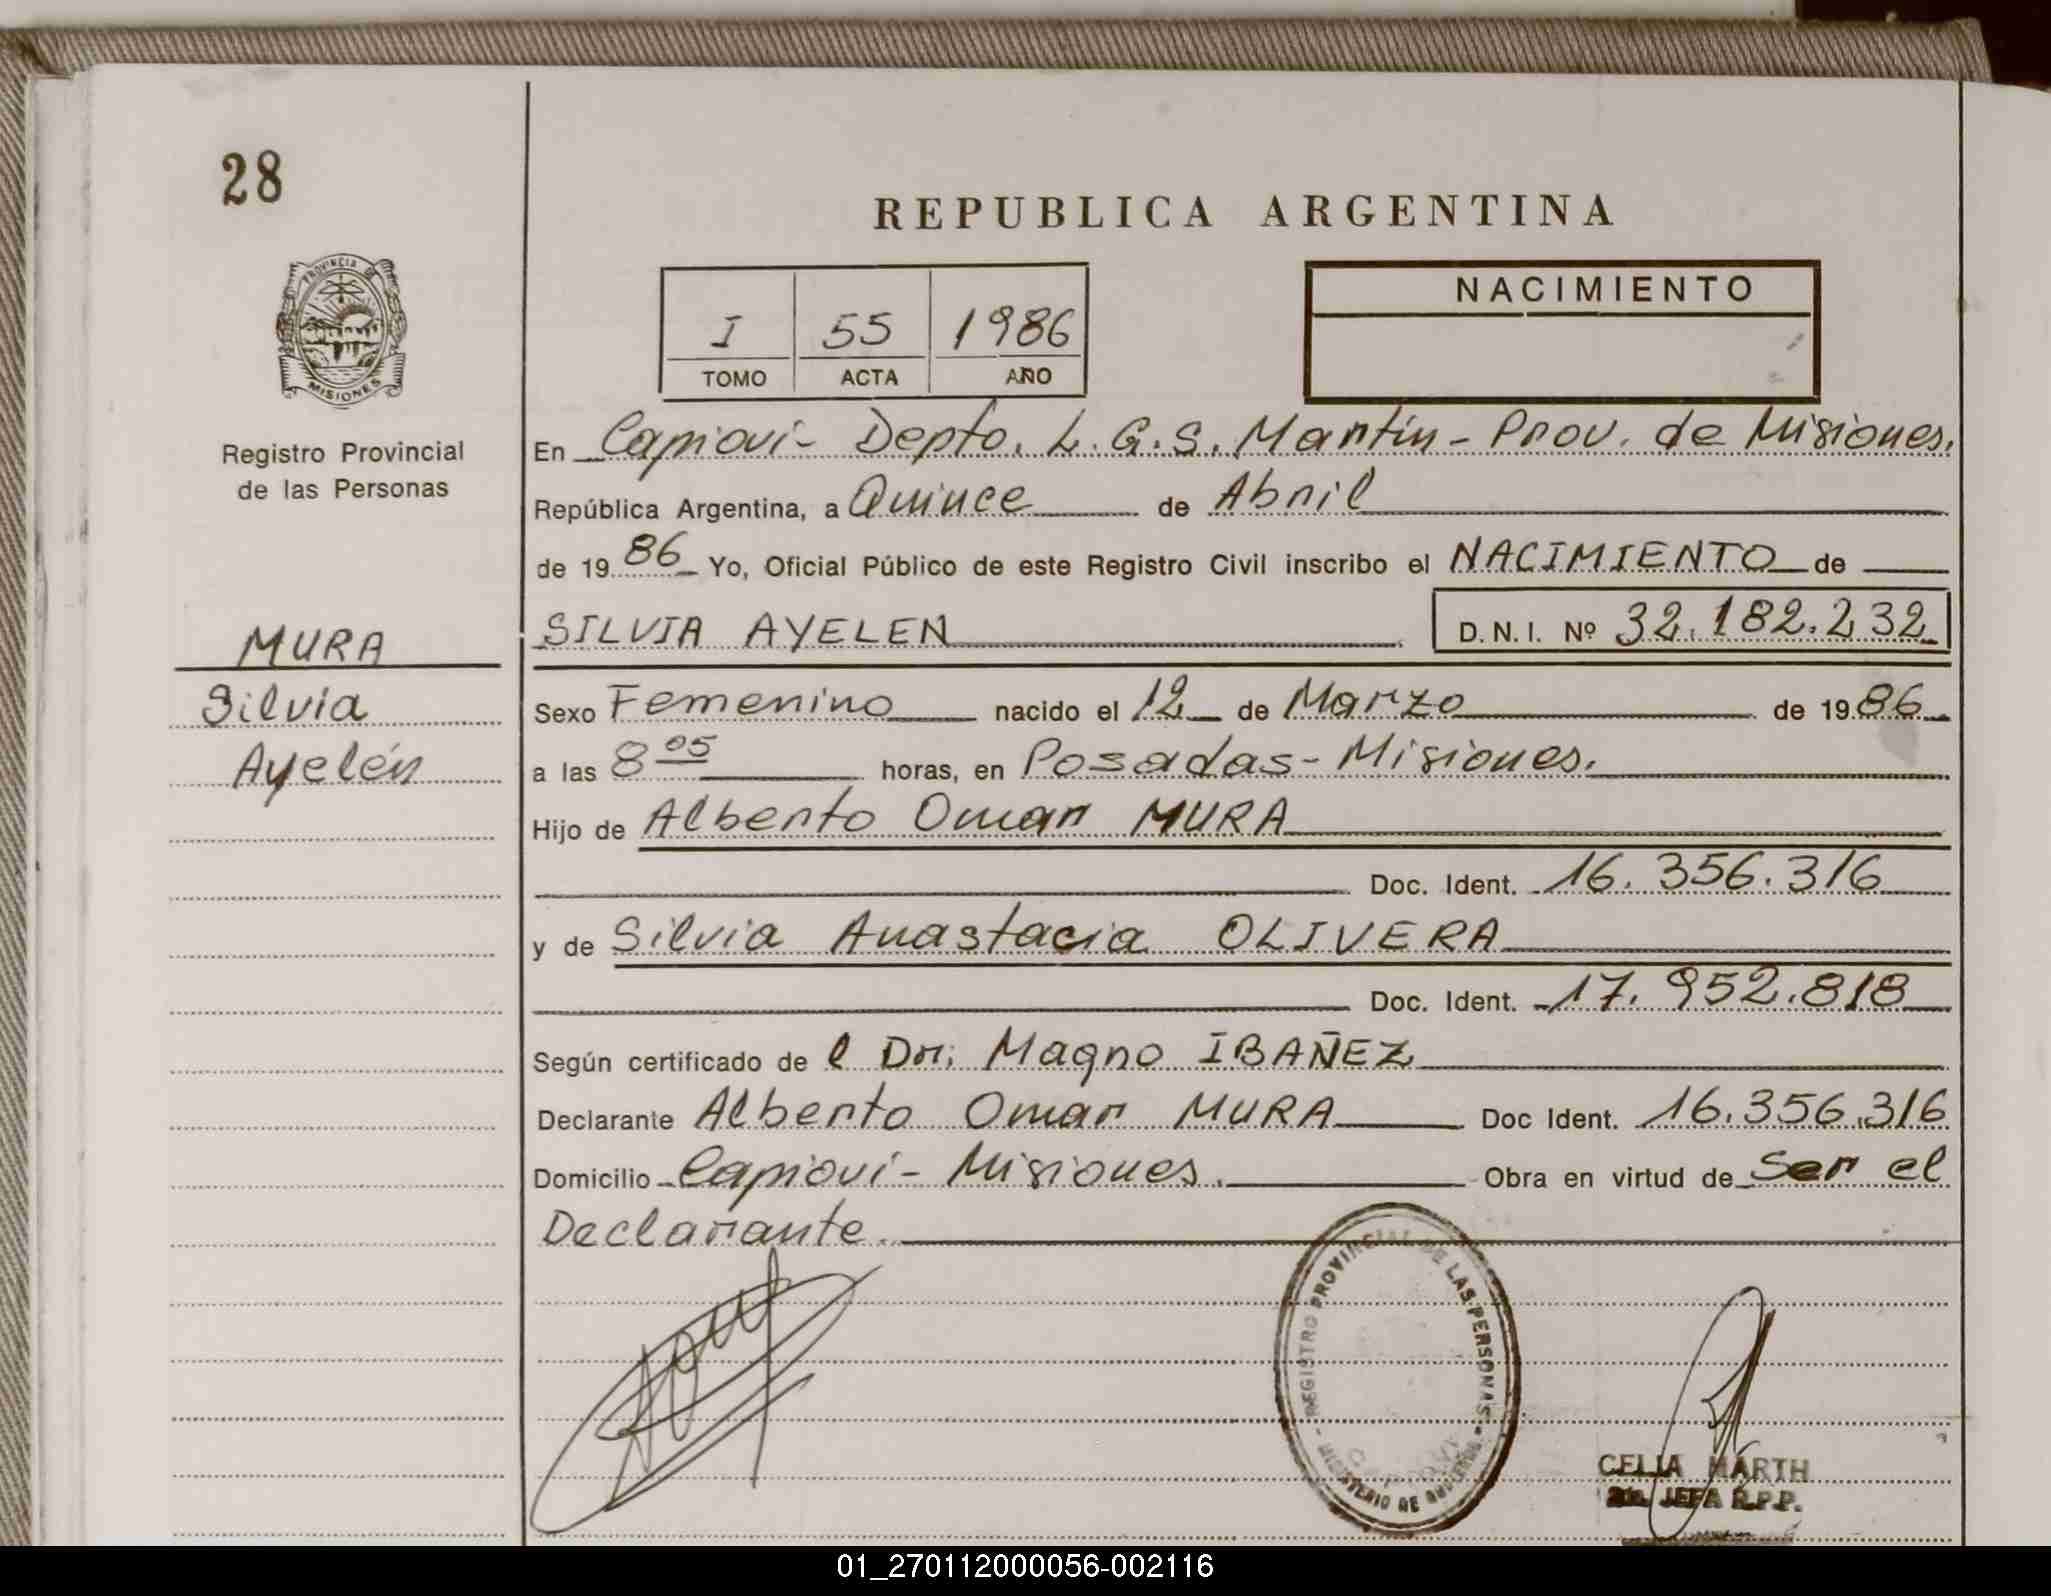 28
REPUBLICA ARGENTINA
PROVINCIA DE
MISIONES
Registro Provincial
de las Personas
I 55 1986
TOMO ACTA AÑO
NACIMIENTO
En Capioví - Depto. L. G. S. Martín - Prov. de Misiones.
República Argentina, a Quince de Abril
de 19 86 Yo, Oficial Público de este Registro Civil inscribo el NACIMIENTO de
MURA
Silvia
Ayelén
SILVIA AYELEN D.N.I. Nº 32.182.232
Sexo Femenino nacido el 12 de Marzo de 19 86
a las 8 05 horas, en Posadas - Misiones.
Hijo de Alberto Omar MURA
Doc. Ident. 16.356.316
y de Silvia Anastacia OLIVERA
Doc. Ident. 17.952.818
Según certificado de l Dr: Magno IBAÑEZ
Declarante Alberto Omar MURA Doc Ident. 16.356.316
Domicilio Capioví - Misiones. Obra en virtud de Ser el
Declarante.
REGISTRO PROVINCIAL DE LAS PERSONAS
MINISTERIO DE GOBIERNO
CELIA MARTH
JEFA R.P.P.
01_270112000056-002116